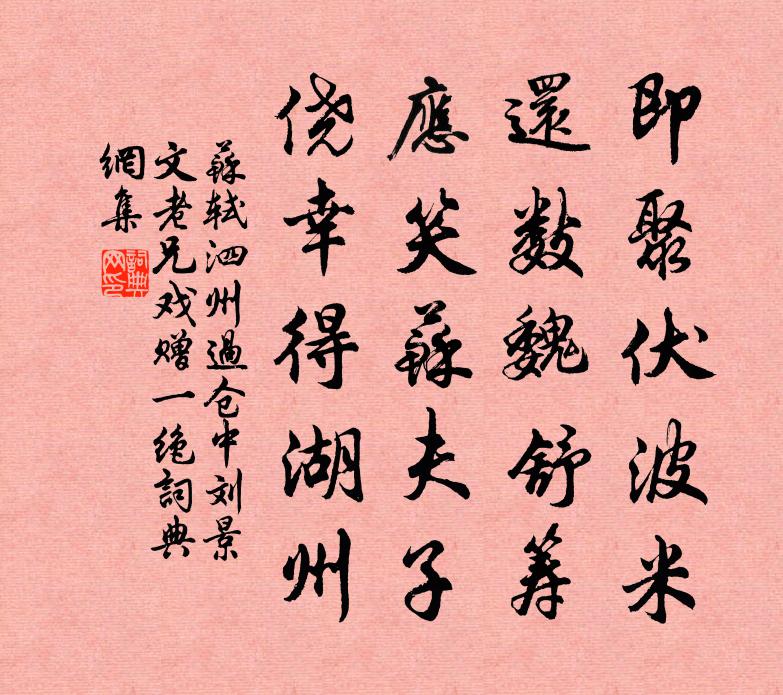 即聚伏波米
還数魏舒筹
應笑蘇夫子
侥幸得湖州
蘇轼泗州過仓中刘景
文老兄戏赠一绝詞典
網集
詞典
网印